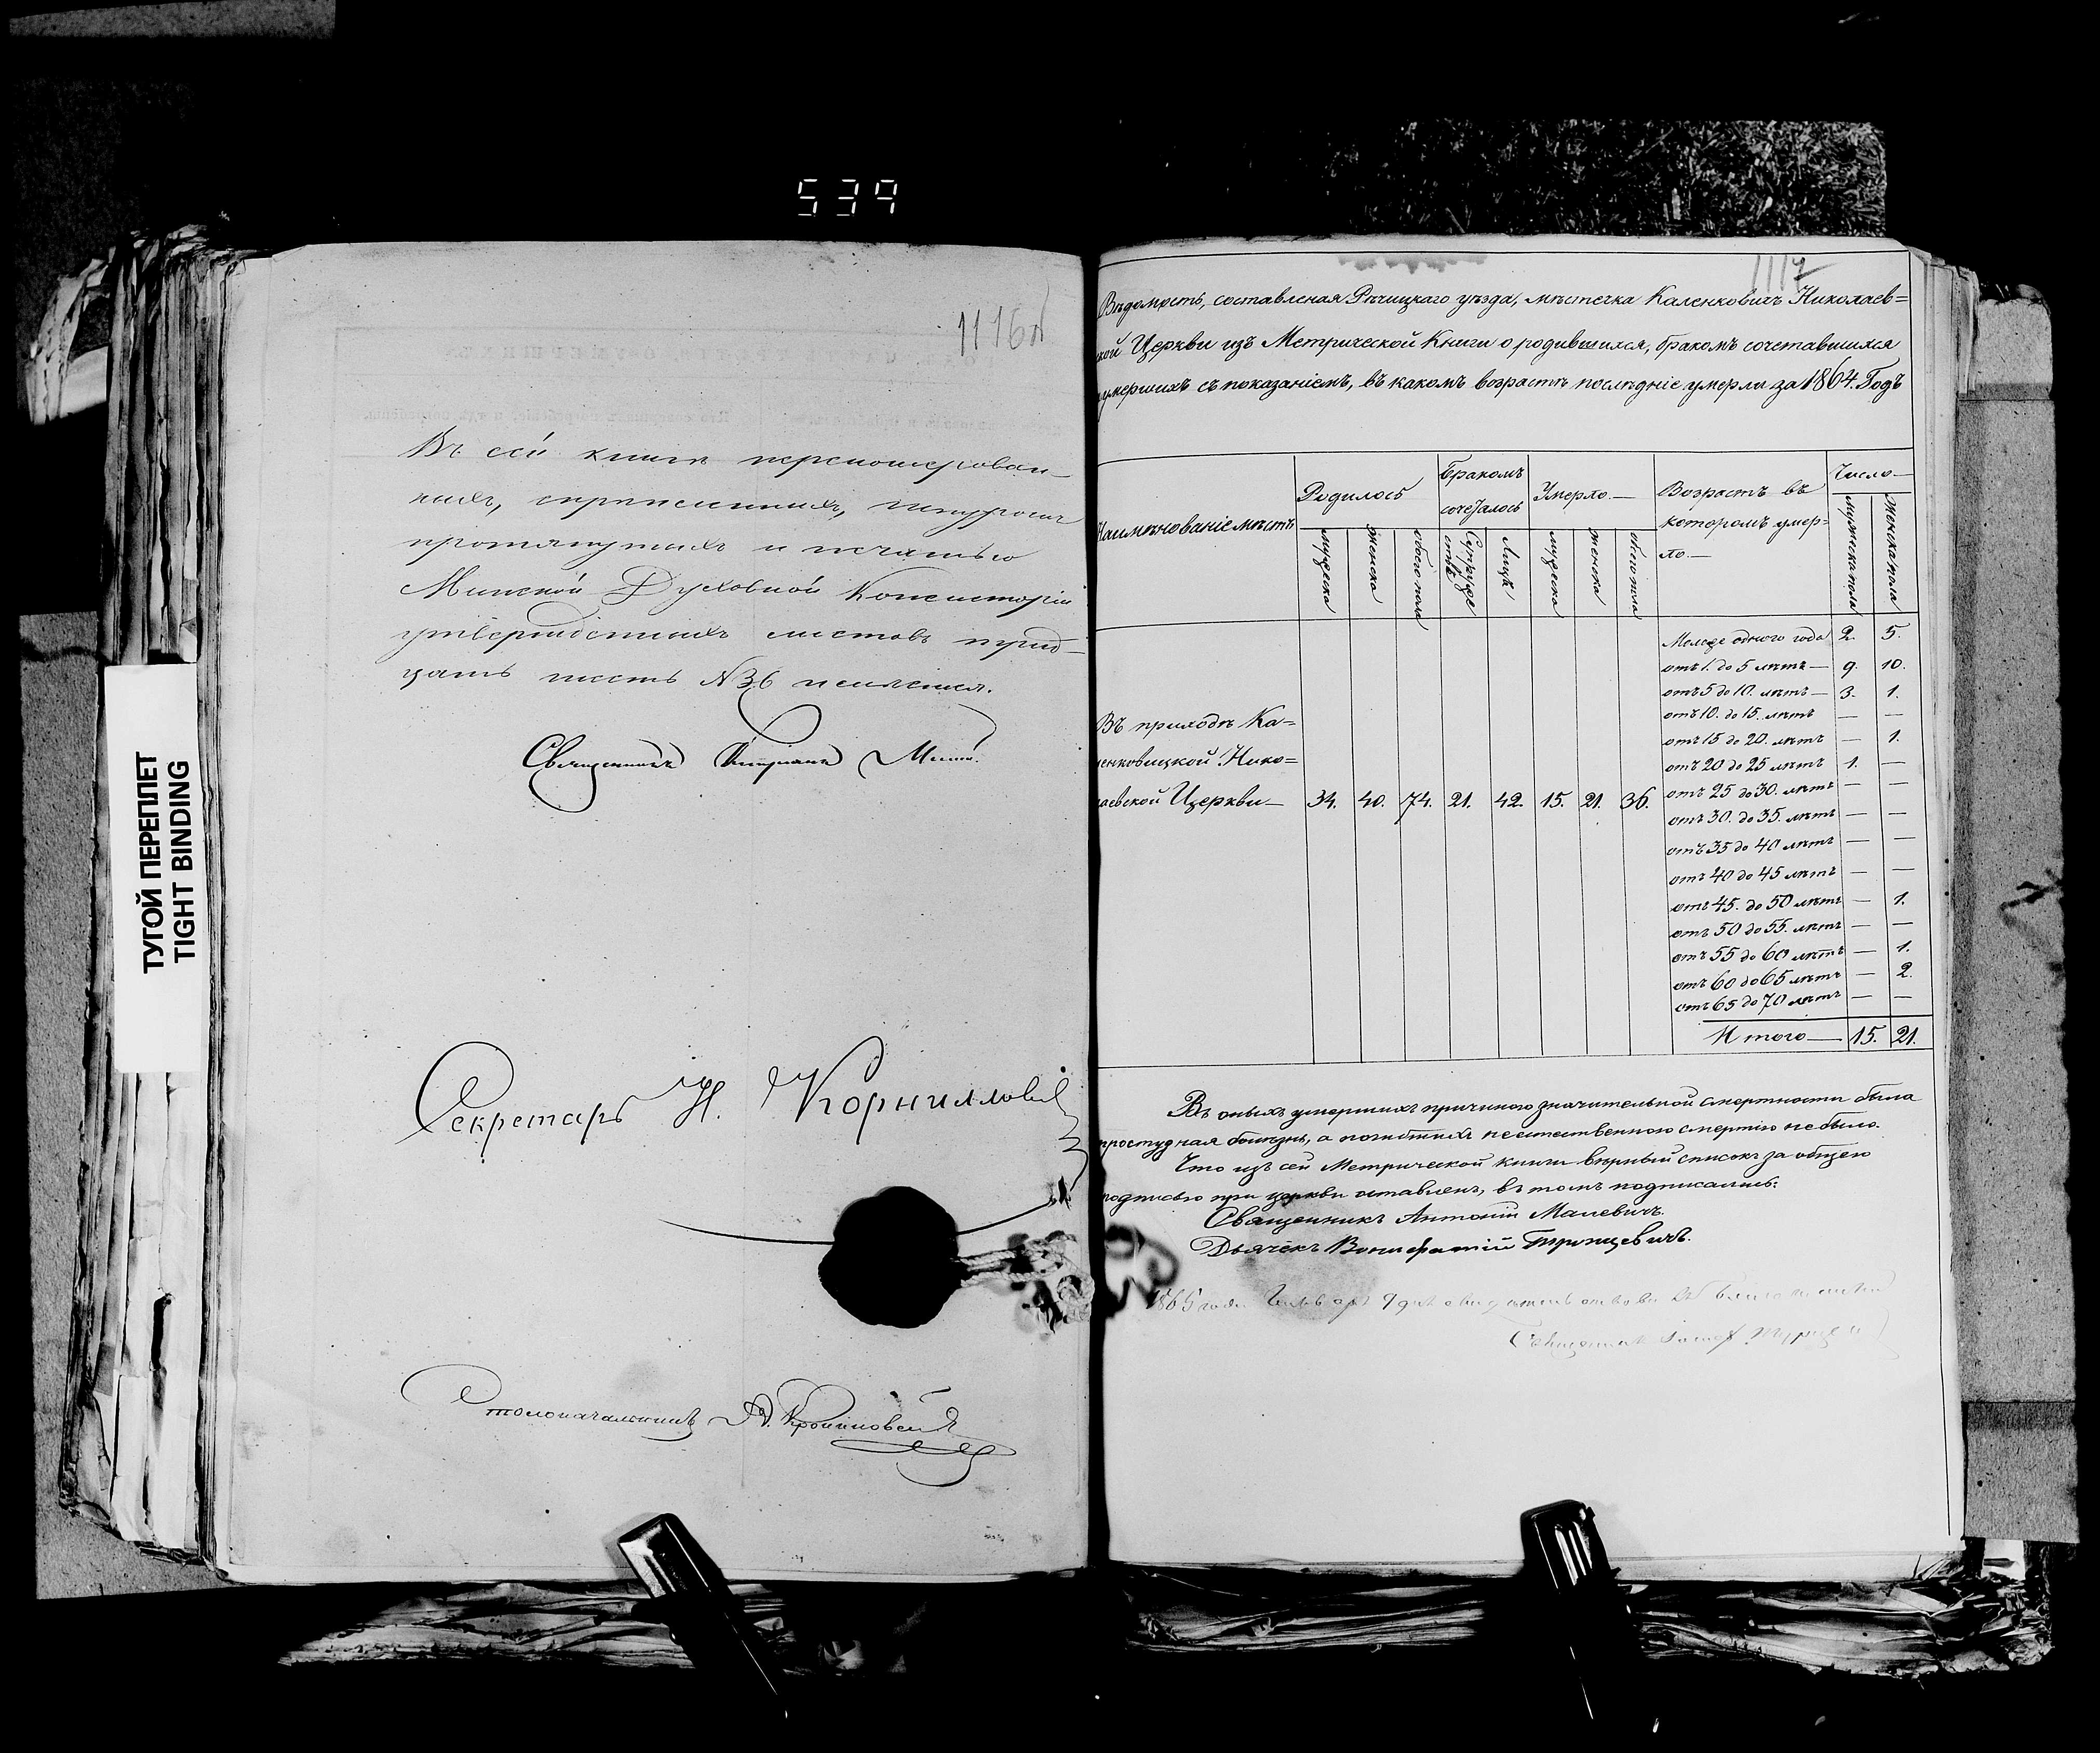 539
ТУГОЙ ПЕРЕПЛЕТ
TIGHT BINDING
1116
Въ сей книгѣ перенумерован-
ныхъ, скрѣпленныхъ, шнуромъ
протянутыхъ и печатью
Минской Духовной Консисторіи
утвержденныхъ листовъ трид-
цать шесть №36 
Священникъ
Секретарь И. Корниллові
Столоначальникъ
1117
Вѣдомость, составленая Рѣчицкаго уѣзда, мѣстечка Каленковичъ Николаев=
кой Церкви изъ Метрической Книги о родившихся, бракомъ сочетавшихся
умершихъ съ показаніемъ, въ какомъ возрастѣ послѣдніе умерли за 1864. Годъ
Наимѣнованіе мѣстъ
Родилось
Бракомъ сочеталось
Умерло—
Возрастъ въ которомъ умер=ло.—
Число—
мужеска
женска
обоего пола
Супружествъ
Лицъ
мужеска
женска
обоего пола
мужеска пола
женска пола
Въ приходѣ Ка=
ленковицкой Нико=
лаевской Церкви— 34. 40. 74. 21. 42. 15. 21. 36.
Моложе одного года 2. 5.
отъ 1. до 5 лѣтъ— 9. 10.
отъ 5 до 10. лѣтъ— 3. 1.
отъ 10. до 15. лѣтъ — —
отъ 15 до 20. лѣтъ — 1.
отъ 20 до 25 лѣтъ 1. —
отъ 25 до 30. лѣтъ — —
отъ 30. до 35. лѣтъ — —
отъ 35 до 40 лѣтъ — —
отъ 40 до 45 лѣтъ — —
отъ 45. до 50 лѣтъ — 1.
отъ 50 до 55. лѣтъ — —
отъ 55 до 60 лѣтъ — 1.
отъ 60 до 65 лѣтъ — 2.
отъ 65 до 70 лѣтъ — —
Итого— 15. 21.
Въ оныхъ умершихъ причиною значительной смертности была
простудная болѣзнь, а погибшихъ неестественною смертію не было.
Что изъ сей Метрической книги вѣрный списокъ за общею
подписью при церкви оставленъ, въ томъ подписались:
Священникъ Антоній Малевичъ.
Дьячекъ Вонифатій Тропцевичъ.
1865 года